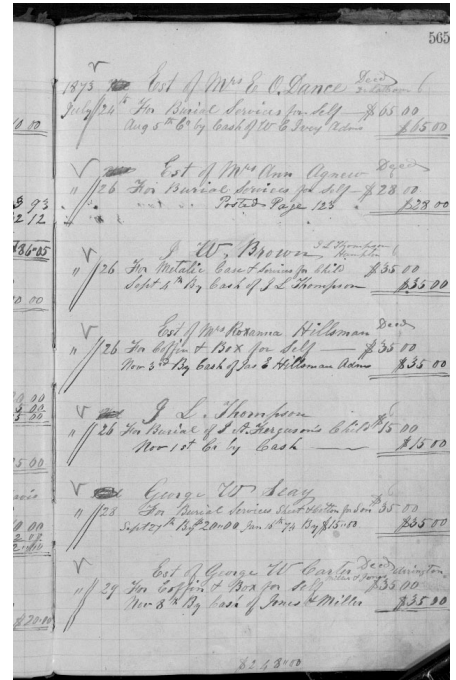 565
1873 Est of Mrs E O. Dance Deed
July 24th For Burial Services for Self $65 00
Aug 5th Cr by Cash of W E Ivey Adms $65 00
Est of Mrs Ann Agnew Deed
" 26 For Burial Services for Self $28 00
Posted Page 123 $28 00
J W. Brown J L Thompson
" 26 For Metalic Case & Services for Child $35 00
Sept 4th By Cash of J L Thompson $35 00
Est of Mrs Roxanna Hillsman Deed
" 26 For Coffin & Box for Self $35 00
Nov 3rd By Cash of Jas E Hillsman Adms $35 00
J L. Thompson
" 26 For Burial of J A. Ferguson's Child $15 00
Nov 1st Cr by Cash $15 00
George W Seay
" 28 For Burial Services for Son $35 00
Sept 27th By $20"00 Jan 16th 74 By $15"00 $35 00
Est of George W Carter Deed
" 29 For Coffin & Box for Self $35 00
Nov 8th By Cash of Jones & Miller $35 00
93
2 12
86-05
00
25 00
$20-00
$243"00